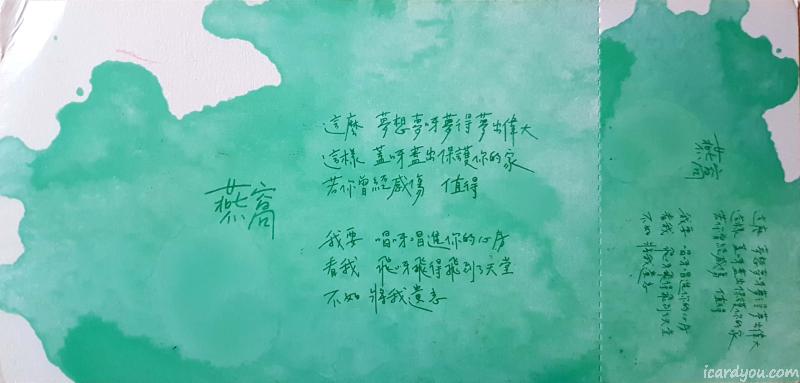 燕窩
這麼 夢想夢呀夢得夢出偉大
這樣 蓋呀蓋出保護你的家
若你曾經感傷 值得
我要 唱呀唱進你的心房
看我 飛呀飛得飛到了天堂
不如 將我遺忘
燕窩
這麼 夢想夢呀夢得夢出偉大
這樣 蓋呀蓋出保護你的家
若你曾經感傷 值得
我要 唱呀唱進你的心房
看我 飛呀飛得飛到了天堂
不如 將我遺忘
icardyou.com